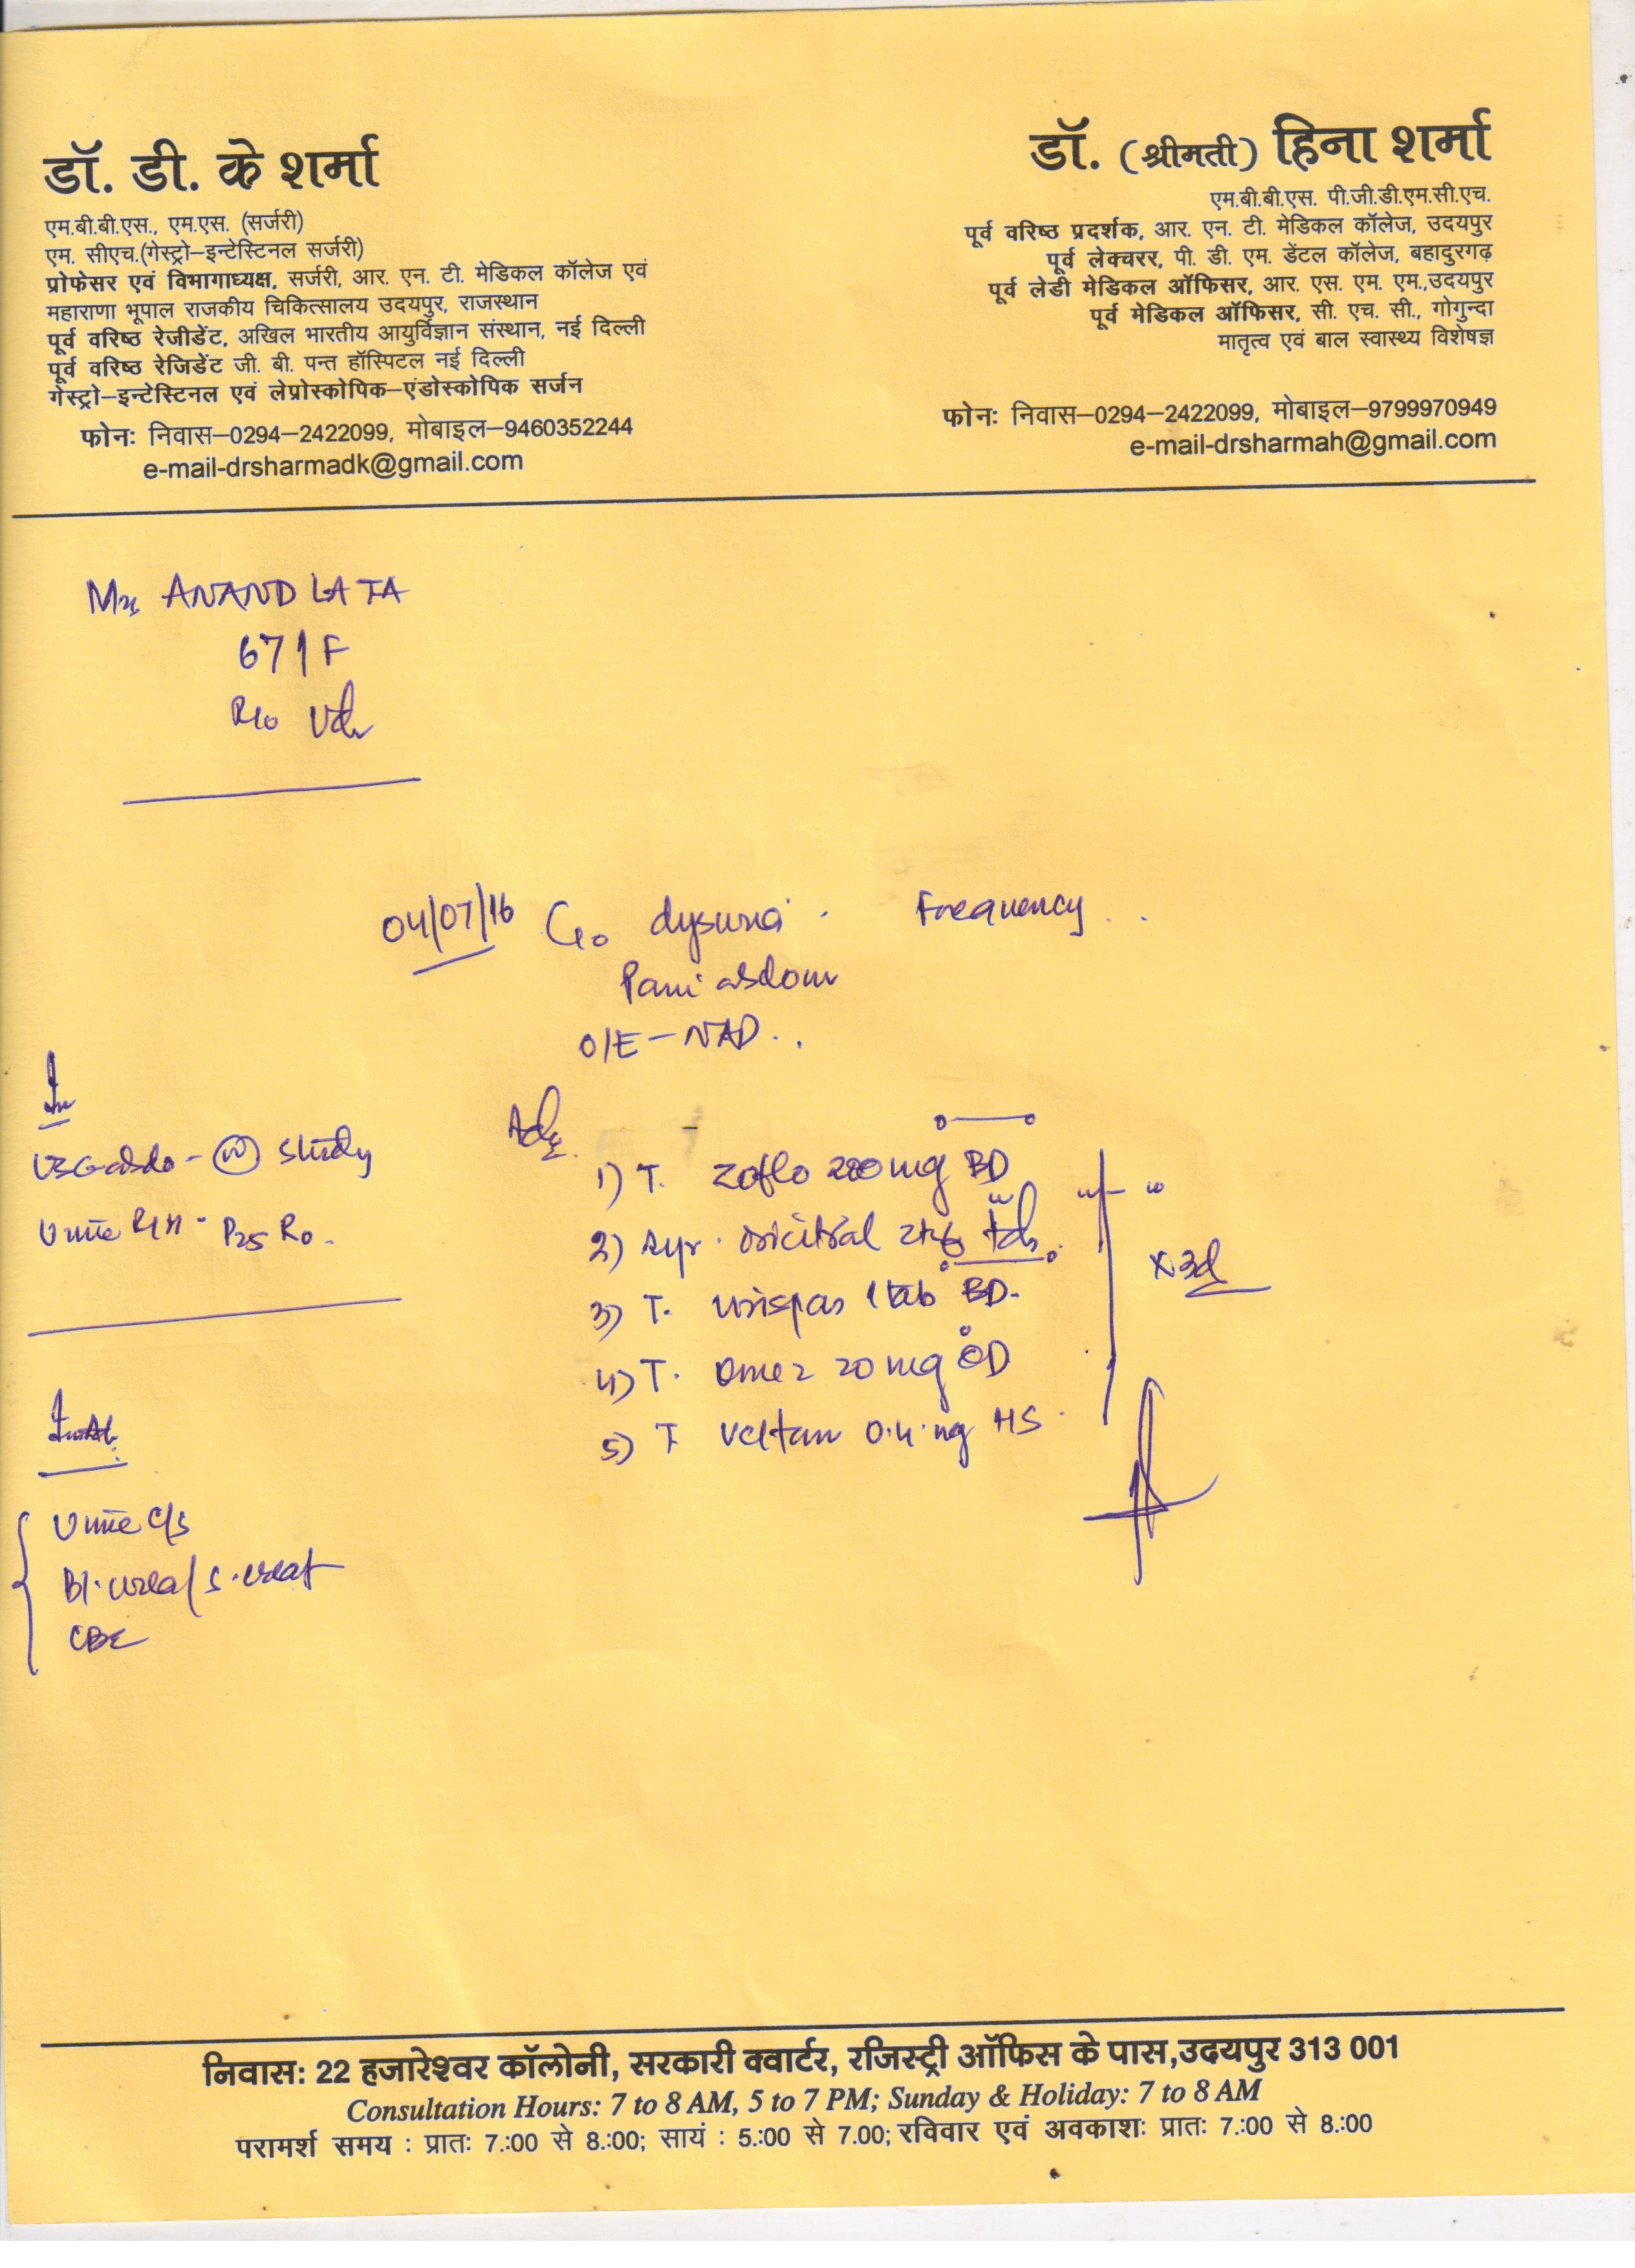 डॉ. डी. के शर्मा
एम.बी.बी.एस., एम.एस. (सर्जरी)
एम. सीएच.(गेस्ट्रो–इन्टेस्टिनल सर्जरी)
प्रोफेसर एवं विभागाध्यक्ष, सर्जरी, आर. एन. टी. मेडिकल कॉलेज एवं
महाराणा भूपाल राजकीय चिकित्सालय उदयपुर, राजस्थान
पूर्व वरिष्ठ रेजीडेंट, अखिल भारतीय आयुर्विज्ञान संस्थान, नई दिल्ली
पूर्व वरिष्ठ रेजिडेंट जी. बी. पन्त हॉस्पिटल नई दिल्ली
गेस्ट्रो–इन्टेस्टिनल एवं लेप्रोस्कोपिक–एंडोस्कोपिक सर्जन
फोन: निवास–0294–2422099, मोबाइल–9460352244
e-mail-drsharmadk@gmail.com
डॉ. (श्रीमती) हिना शर्मा
एम.बी.बी.एस. पी.जी.डी.एम.सी.एच.
पूर्व वरिष्ठ प्रदर्शक, आर. एन. टी. मेडिकल कॉलेज, उदयपुर
पूर्व लेक्चरर, पी. डी. एम. डेंटल कॉलेज, बहादुरगढ़
पूर्व लेडी मेडिकल ऑफिसर, आर. एस. एम. एम.,उदयपुर
पूर्व मेडिकल ऑफिसर, सी. एच. सी., गोगुन्दा
मातृत्व एवं बाल स्वास्थ्य विशेषज्ञ
फोन: निवास–0294–2422099, मोबाइल–9799970949
e-mail-drsharmah@gmail.com
Mrs ANAND LATA
67/F
R/o Udr
04/07/16 C/o dysuria . Frequency . .
Pain abdom
O/E – NAD . .
USG abdo - (N) study
Urine R/M -
Urine C/s
Bl. urea / S. creat
CBC
Adv.
1) T. Zoflo 200mg BD
2) Syr. Oricitral tds
3) T. Urispas 1 tab BD.
4) T. Omez 20mg OD
5) T Veltam 0.4 mg HS
x 3d
निवास: 22 हजारेश्वर कॉलोनी, सरकारी क्वार्टर, रजिस्ट्री ऑफिस के पास,उदयपुर 313 001
Consultation Hours: 7 to 8 AM, 5 to 7 PM; Sunday & Holiday: 7 to 8 AM
परामर्श समय : प्रातः 7.:00 से 8.:00; सायं : 5.:00 से 7.00; रविवार एवं अवकाशः प्रातः 7.:00 से 8.:00